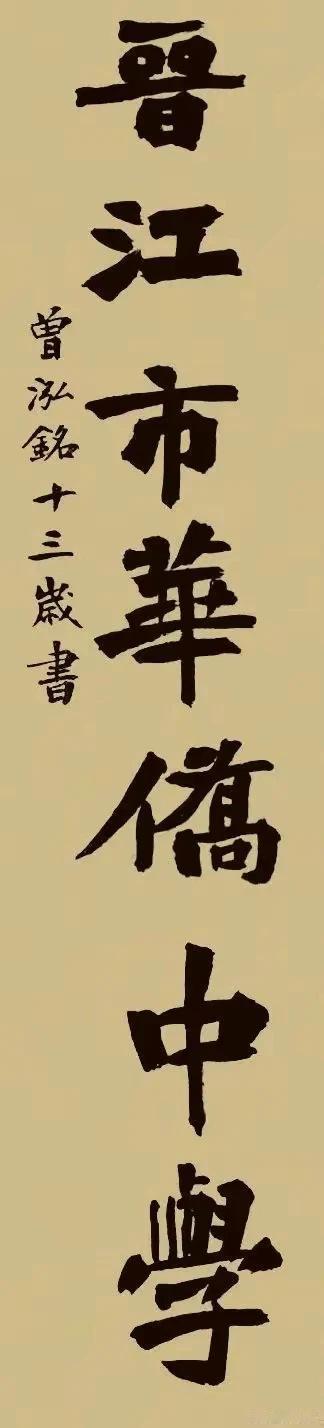 晉江市華僑中學
曾泓銘十三歲書